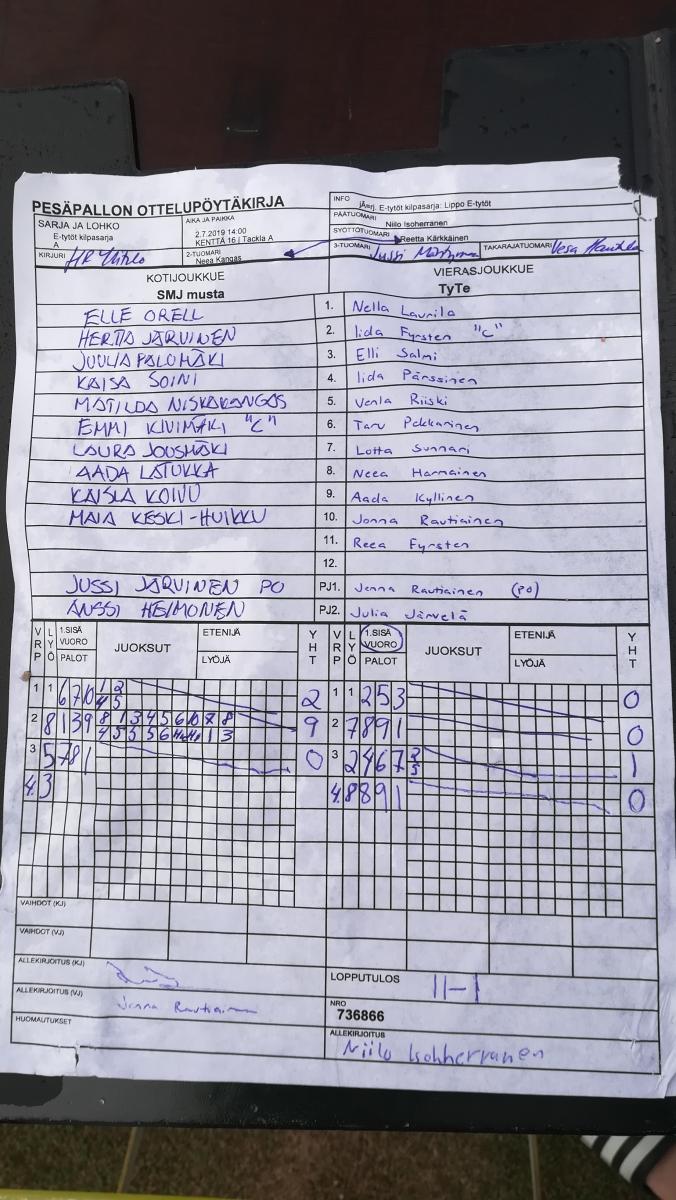 PESÄPALLON OTTELUPÖYTÄKIRJA
INFO
jÄverj. E-tytöt kilpasarja: Lippo E-tytöt
SARJA JA LOHKO
E-tytöt kilpasarja
A
AIKA JA PAIKKA
2.7.2019 14:00
KENTTÄ 16 | Tackla A
PÄÄTUOMARI
Niilo Isoherranen
SYÖTTÖTUOMARI
Reetta Kärkkäinen
KIRJURI
2-TUOMARI
Neea Kangas
3-TUOMARI Jussi
TAKARAJATUOMARI Vesa
KOTIJOUKKUE VIERASJOUKKUE
SMJ musta TyTe
ELLE ORELL 1. Nella Laurila
HERTTA JÄRVINEN 2. Iida Fyrsten "C"
JUULIA PALOMÄKI 3. Elli Salmi
KAISA SOINI 4. Iida Pärssinen
MATILDA NISKAKANGAS 5. Venla Riiski
EMMI KIVIMÄKI "C" 6. Taru Pekkarinen
LAURA JOUSMÄKI 7. Lotta Sunnari
AADA LATUKKA 8. Neea Harmainen
KAISLA KOIVU 9. Aada Kyllinen
MAIA KESKI-HUIKKU 10. Jonna Rautiainen
11. Reea Fyrsten
12.
JUSSI JÄRVINEN PO PJ1. Jenna Rautiainen (PO)
ANSSI HEIMONEN PJ2. Julia Järvelä
VRP LYÖ 1.SISÄ VUORO PALOT JUOKSUT ETENIJÄ LYÖJÄ YHT VRP LYÖ 1.SISÄ VUORO PALOT JUOKSUT ETENIJÄ LYÖJÄ YHT
1 1 6 7 10 1 2 2 1 1 2 5 3 0
4 5
2 8 1 3 9 8 1 3 4 5 6 10 7 8 9 2 7 8 9 1 0
4 5 5 5 6 1 3
3 5 7 8 1 0 3 2 4 6 7 1
4. 3 4. 8 8 9 1 0
VAIHDOT (KJ)
VAIHDOT (VJ)
ALLEKIRJOITUS (KJ)
LOPPUTULOS 11-1
ALLEKIRJOITUS (VJ) Jenna Rautiainen
NRO
736866
HUOMAUTUKSET
ALLEKIRJOITUS
Niilo Isohherranen